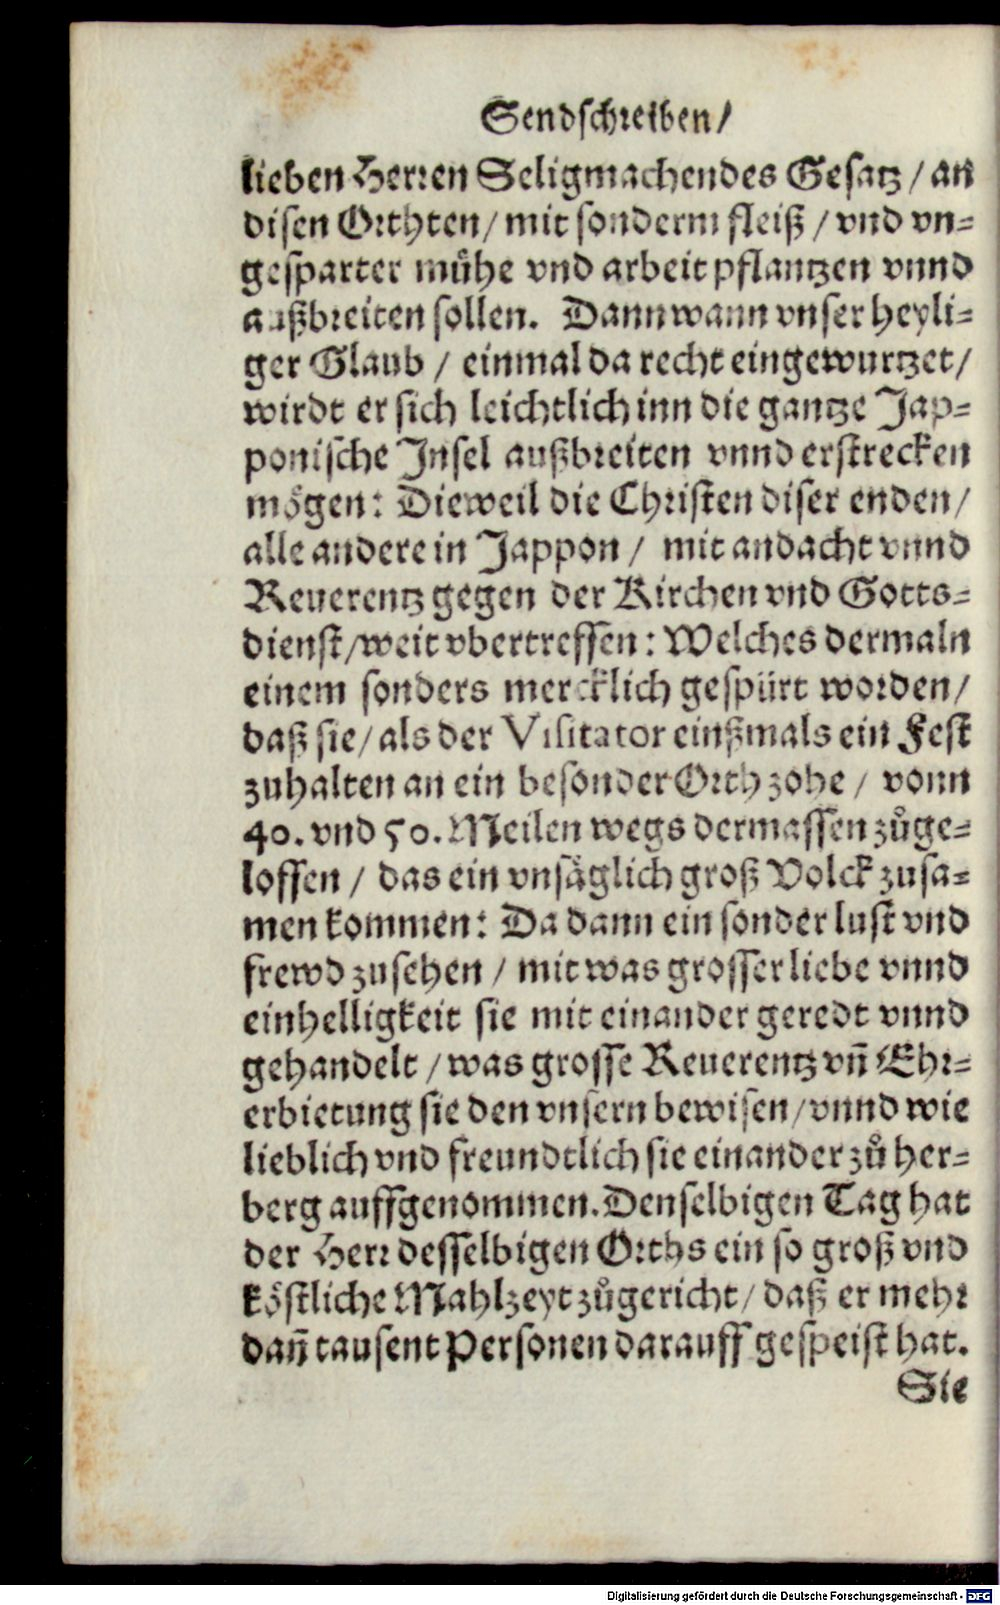 Sendschreiben/
lieben Herren Seligmachendes Gesatz / an
disen Orthten / mit sonderm fleiß / vnd vn=
gesparter mühe vnd arbeit pflantzen vnnd
außbreiten sollen. Dann wann vnser heyli=
ger Glaub / einmal da recht eingewurtzet /
wirdt er sich leichtlich inn die gantze Jap=
ponische Insel außbreiten vnnd erstrecken
mögen: Dieweil die Christen diser enden /
alle andere in Jappon / mit andacht vnnd
Reuerentz gegen der Kirchen vnd Gotts=
dienst / weit vbertreffen: Welches dermaln
einem sonders mercklich gespürt worden /
daß sie / als der Visitator einßmals ein Fest
zuhalten an ein besonder Orth zohe / vonn
40. vnd 50. Meilen wegs dermassen zůge=
loffen / das ein vnsäglich groß Volck zusa=
men kommen: Da dann ein sonder lust vnd
frewd zusehen / mit was grosser liebe vnnd
einhelligkeit sie mit einander geredt vnnd
gehandelt / was grosse Reuerentz vñ Ehr=
erbietung sie den vnsern bewisen / vnnd wie
lieblich vnd freundtlich sie einander zů her=
berg auffgenommen. Denselbigen Tag hat
der Herr desselbigen Orths ein so groß vnd
köstliche Mahlzeyt zůgericht / daß er mehr
dañ tausent Personen darauff gespeist hat.
Sie
Digitalisierung gefördert durch die Deutsche Forschungsgemeinschaft - DFG